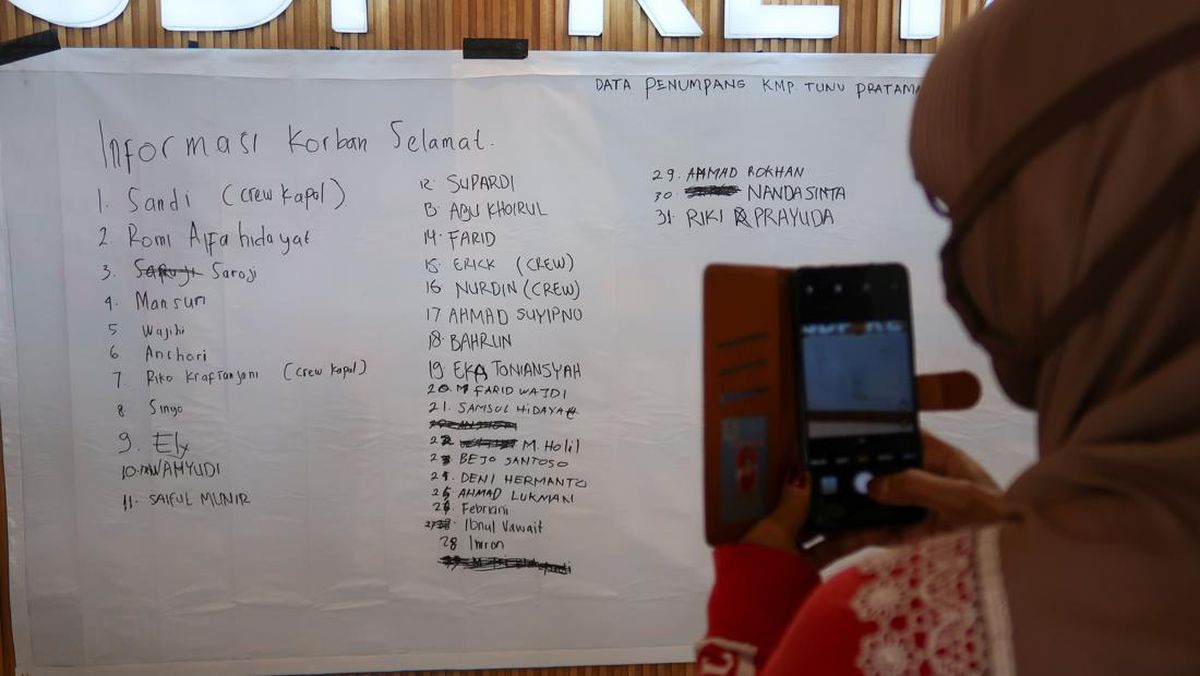 DATA PENUMPANG KMP TUNU PRATAMA
Informasi Korban Selamat.
1. Sandi (crew kapal)
2. Romi Alfa hidayat
3. Saroji
4. Mansuri
5 Wajihi
6 Anshori
7 Riko Krafsanjani (crew kapal)
8 Singo
9. Ely
10. WAHYUDI
11. SAIFUL MUNIR
12. SUPARDI
13. ABU KHOIRUL
14. FARID
15. ERICK (CREW)
16. NURDIN (CREW)
17 AHMAD SUYIPNO
18. BAHRUN
19. EKA TONIANSYAH
20. M FARID WAJDI
21. SAMSUL HIDAYAT
22 M. Holil
23 BEJO SANTOSO
24. DENI HERMANTO
25 AHMAD LUKMAN
26 Febriani
27 Ibnul Vawait
28 Imron
29. AHMAD ROKHAN
30. NANDA SINTA
31. RIKI PRAYUDA